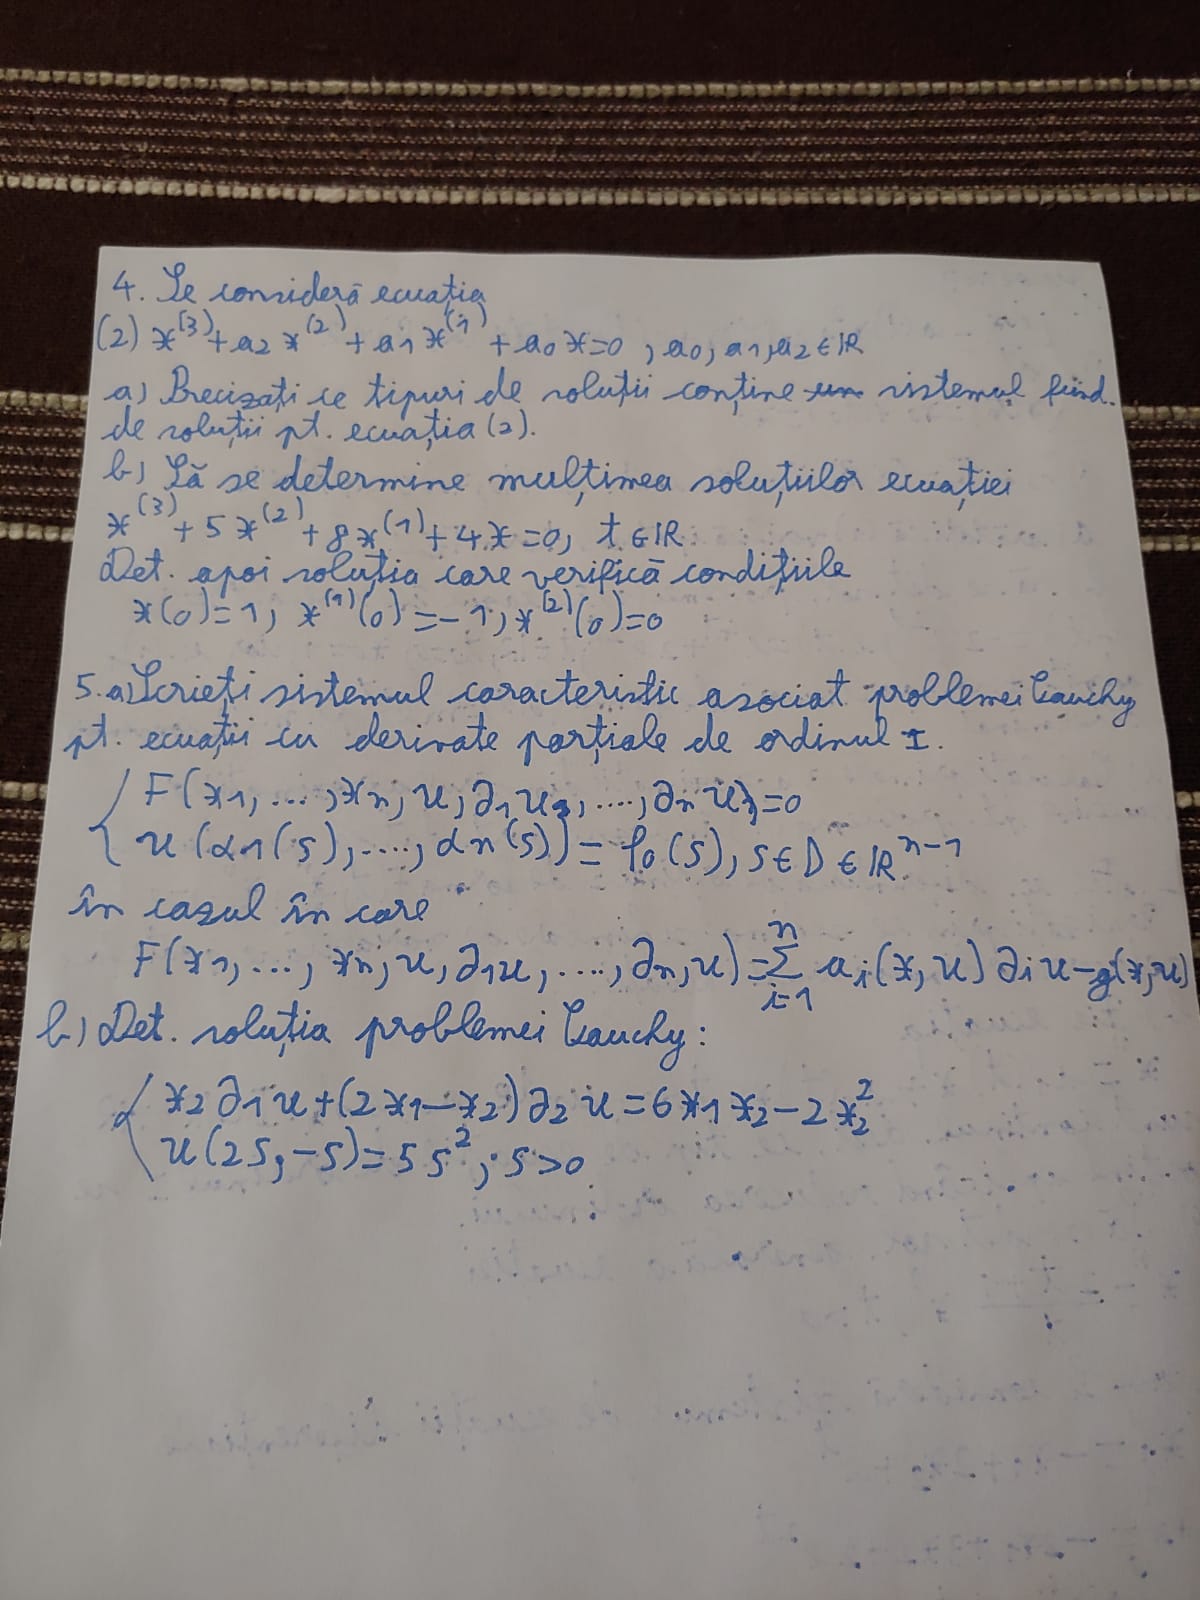 4. Se consideră ecuația
(2) x^(3) + a2 x^(2) + a1 x^(1) + a0 x = 0 , a0, a1, a2 ∈ IR
a) Precizați ce tipuri de soluții conține sistemul fund.
de soluții pt. ecuația (2).
b) Să se determine mulțimea soluțiilor ecuației
x^(3) + 5x^(2) + 8x^(1) + 4x = 0, t ∈ IR
Det. apoi soluția care verifică condițiile
x(0)=1, x^(1)(0)=-1, x^(2)(0)=0
5. a) Scrieți sistemul caracteristic asociat problemei Cauchy
pt. ecuații cu derivate parțiale de ordinul I.
{ F(x1, ..., xn, u, ∂1u, ...., ∂nu) = 0
u(α1(s), ...., αn(s)) = φ0(s), s ∈ D ∈ IR^n-1
în cazul în care
F(x1, ..., xn, u, ∂1u, ...., ∂n, u) = Σ_{i=1}^{n} ai(x, u) ∂iu - g(x, u)
b) Det. soluția problemei Cauchy:
{ x2 ∂1u + (2x1 - x2) ∂2u = 6x1x2 - 2x2^2
u(2s, -s) = 5s^2 ; s > 0